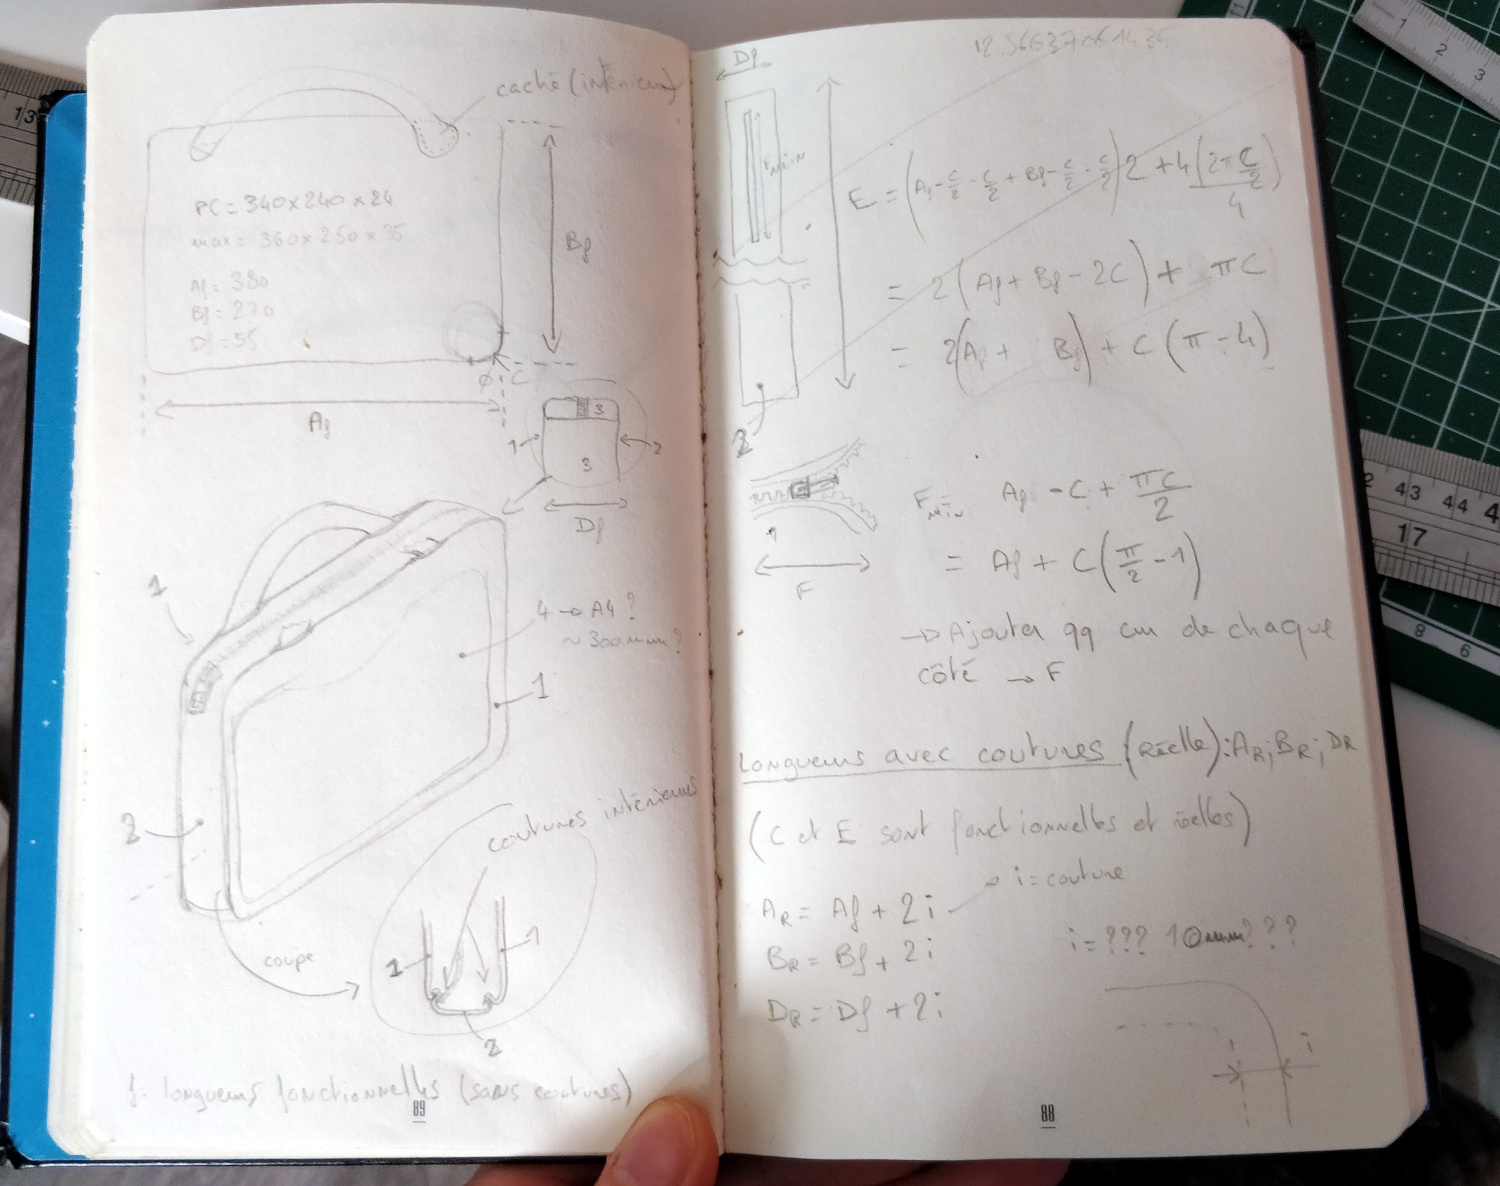 caché (intérieur)
PC = 340x240x24
max = 360x250x35
Af = 380
Bf = 270
Df = 55
Bf
Ø C
Af
3
1
3
2
Df
1
4 → A4 ?
~ 300mm ?
1
2
coutures intérieures
coupe
1
1
2
f = longueurs fonctionnelles (sans coutures)
89
Df
Fmin
E = (Af - C/2 - C/2 + Bf - C/2 - C/2) 2 + 4 (2π C/2)/4
= 2 (Af + Bf - 2C) + πC
= 2(Af + Bf) + C (π - 4)
2
F
Fmin Af - C + πC/2
= Af + C (π/2 - 1)
→ Ajouter qq cm de chaque
côté → F
Longueurs avec coutures (réelle) : AR, BR, DR
(C et E sont fonctionnelles et réelles)
i = couture
AR = Af + 2i
BR = Bf + 2i
DR = Df + 2i
i = ??? 10mm???
i
88
13
1
2
3
2 43 44 4
17
8
6